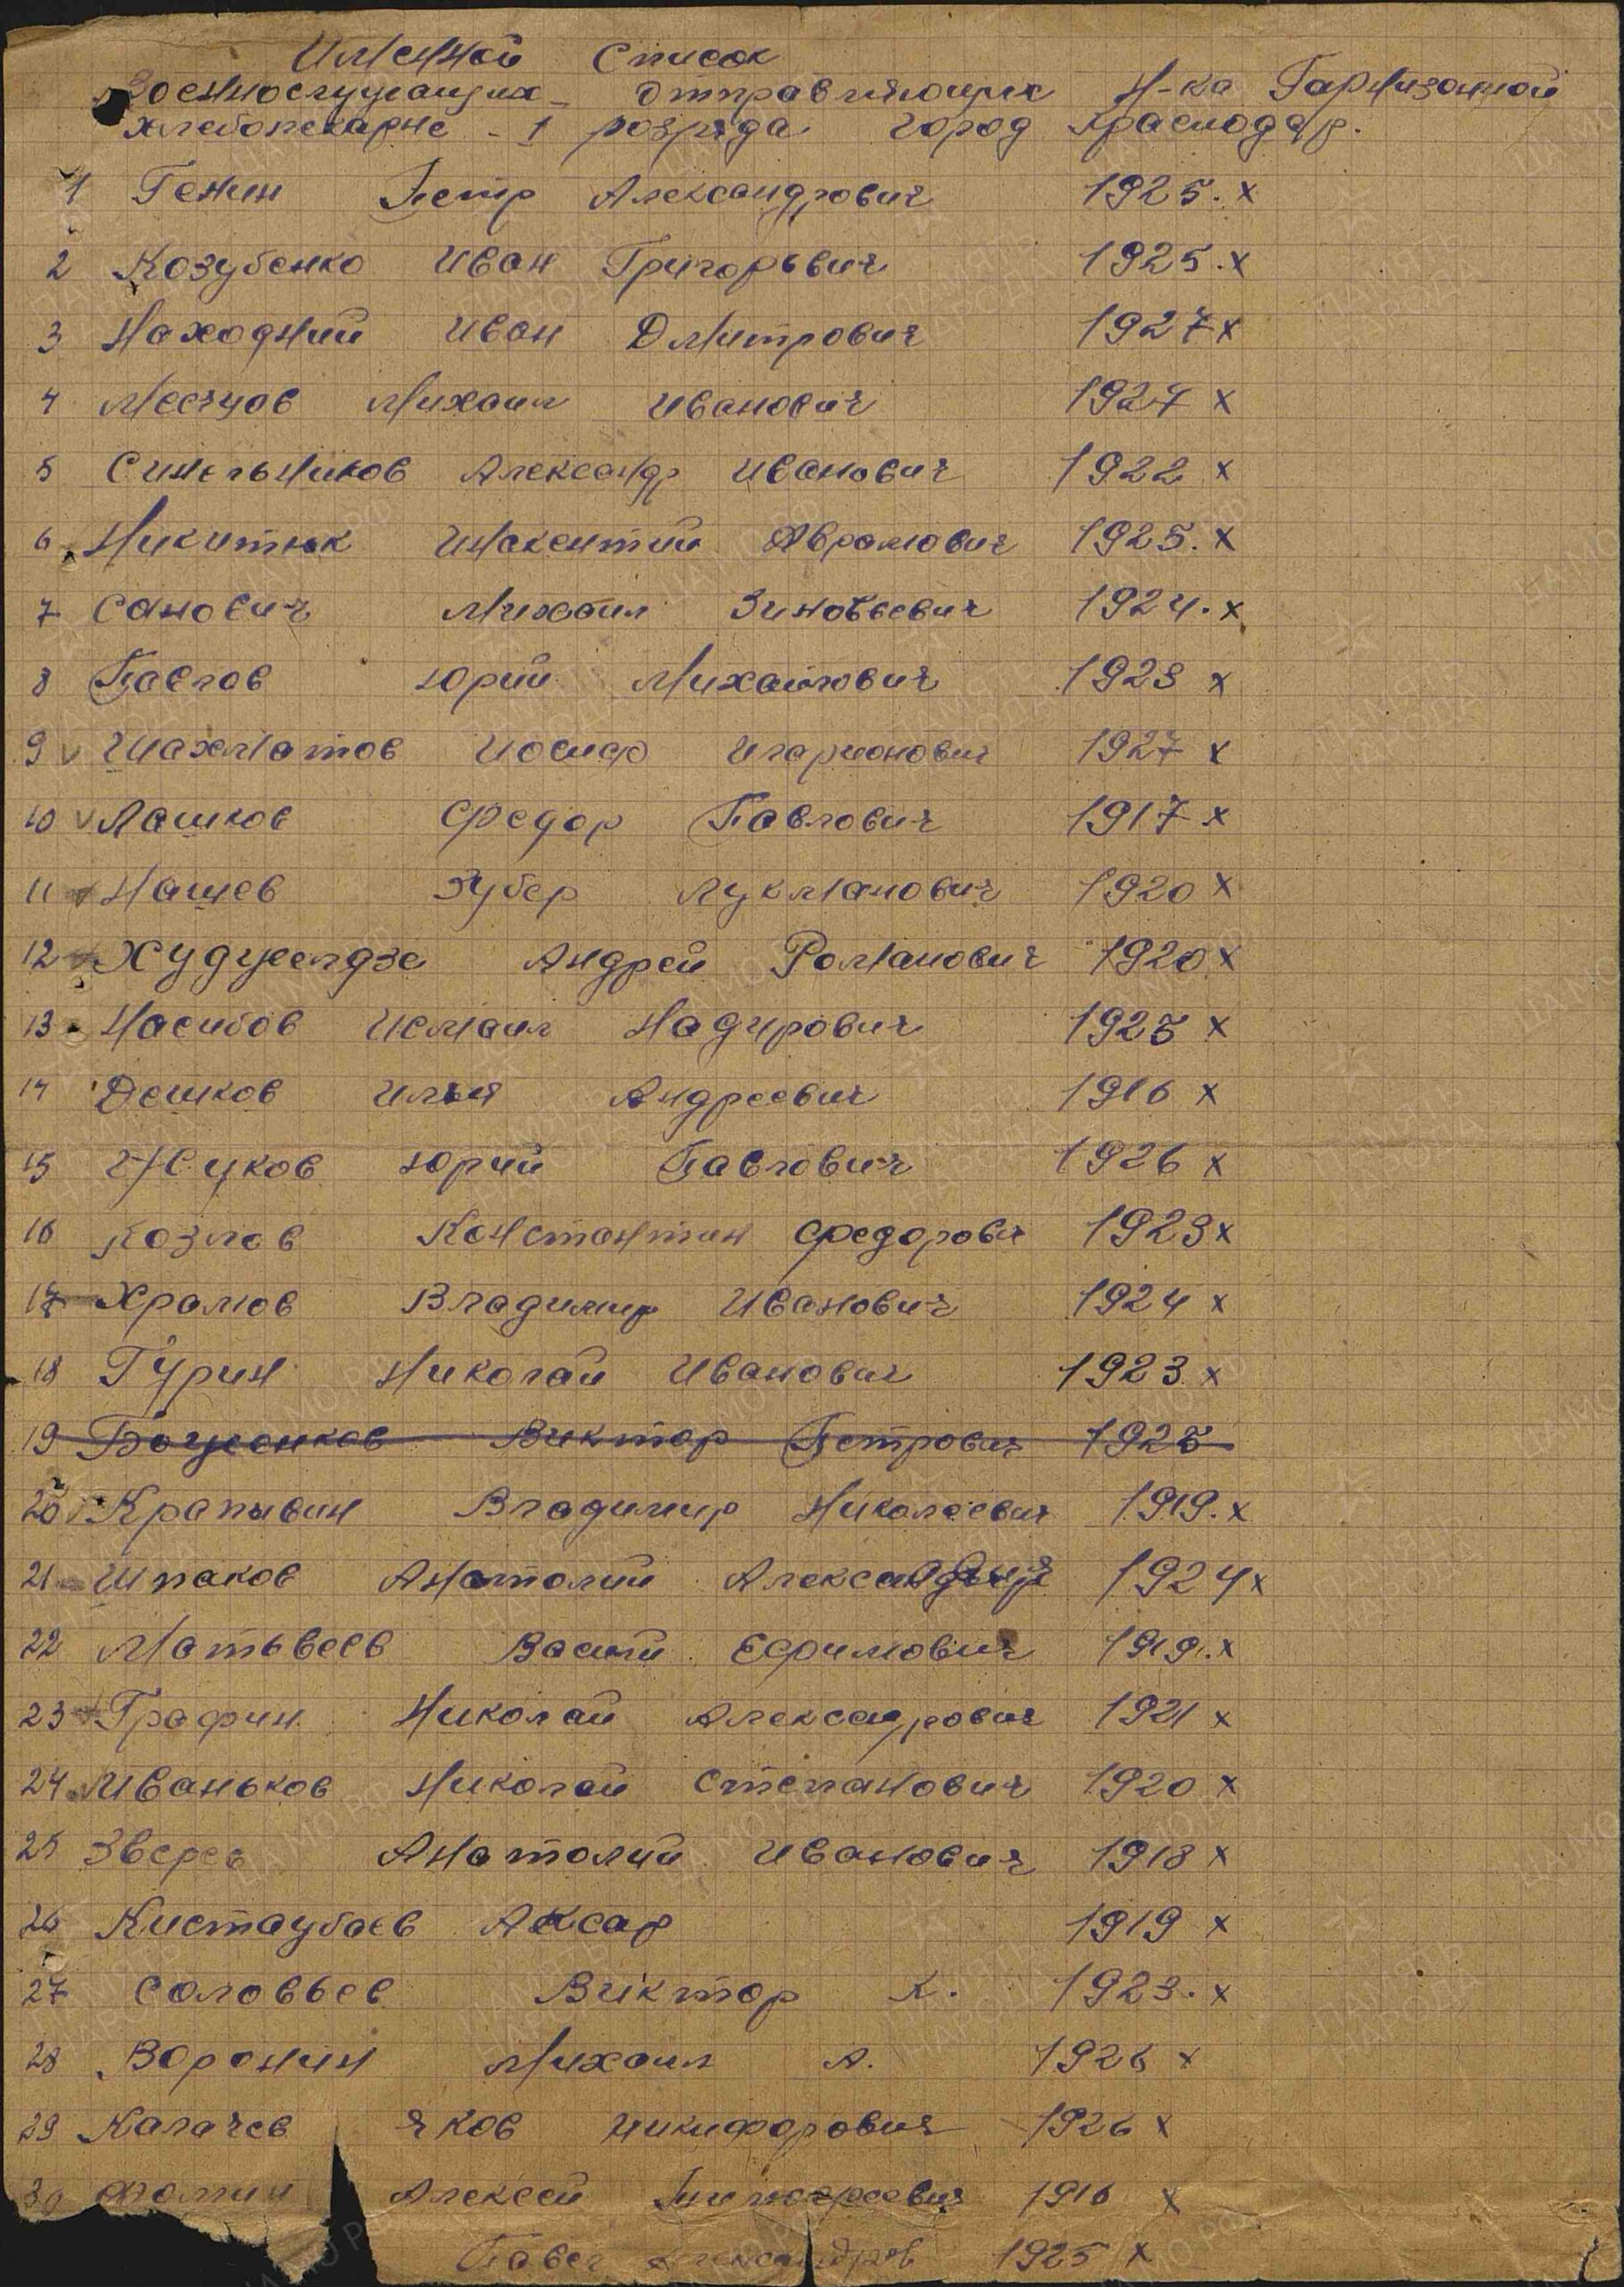 Именной Список
Военнослужащих - отправляющих Н-ка Гарнизонной
хлебопекарне - 1 розряда город Краснодар.
1 Генин Петр Александрович 1925. х
2 Козубенко Иван Григорьвич 1925. х
3 Находний Иван Дмитрович 1927 х
4 Михаил Иванович 1927 х
5 Синельников Александр Иванович 1922 х
6 Никитюк Инокентий Аврамович 1925. х
7 Санович Михаил Зиновьевич 1924. х
8 Павлов Юрий Михайлович 1923 х
9 Шахматов Иосиф Иларионович 1927 х
10 Лашков Федор Павлович 1917 х
11 Нашев Зубер Лукманович 1920 х
12 Худжелдзе Андрей Романович 1920 х
13 Насибов Исмаил Надирович 1925 х
14 Дешков Илья Андреевич 1916 х
15 Жуков Юрий Павлович 1926 х
16 Козлов Константин Федорович 1923 х
17 Храмов Владимир Иванович 1924 х
18 Гурин Николай Иванович 1923 х
19 Боженков Виктор Петрович 1925
20 Крапывин Владимир Николаевич 1919. х
21 Шпаков Анатолий 1924 х
22 Матьвеев Василий Ефимович 1919. х
23 Графин Николай Александрович 1921 х
24 Иваньков Николай Степанович 1920 х
25 Зверев Анатолий Иванович 1918 х
26 Кистаубаев Аксар 1919 х
27 Соловьев Виктор К. 1923. х
28 Воронин Михаил А. 1926 х
29 Калачев Яков Никифорович 1926 х
30 Фомин Алексей 1916 х
Павел Александров 1925 х